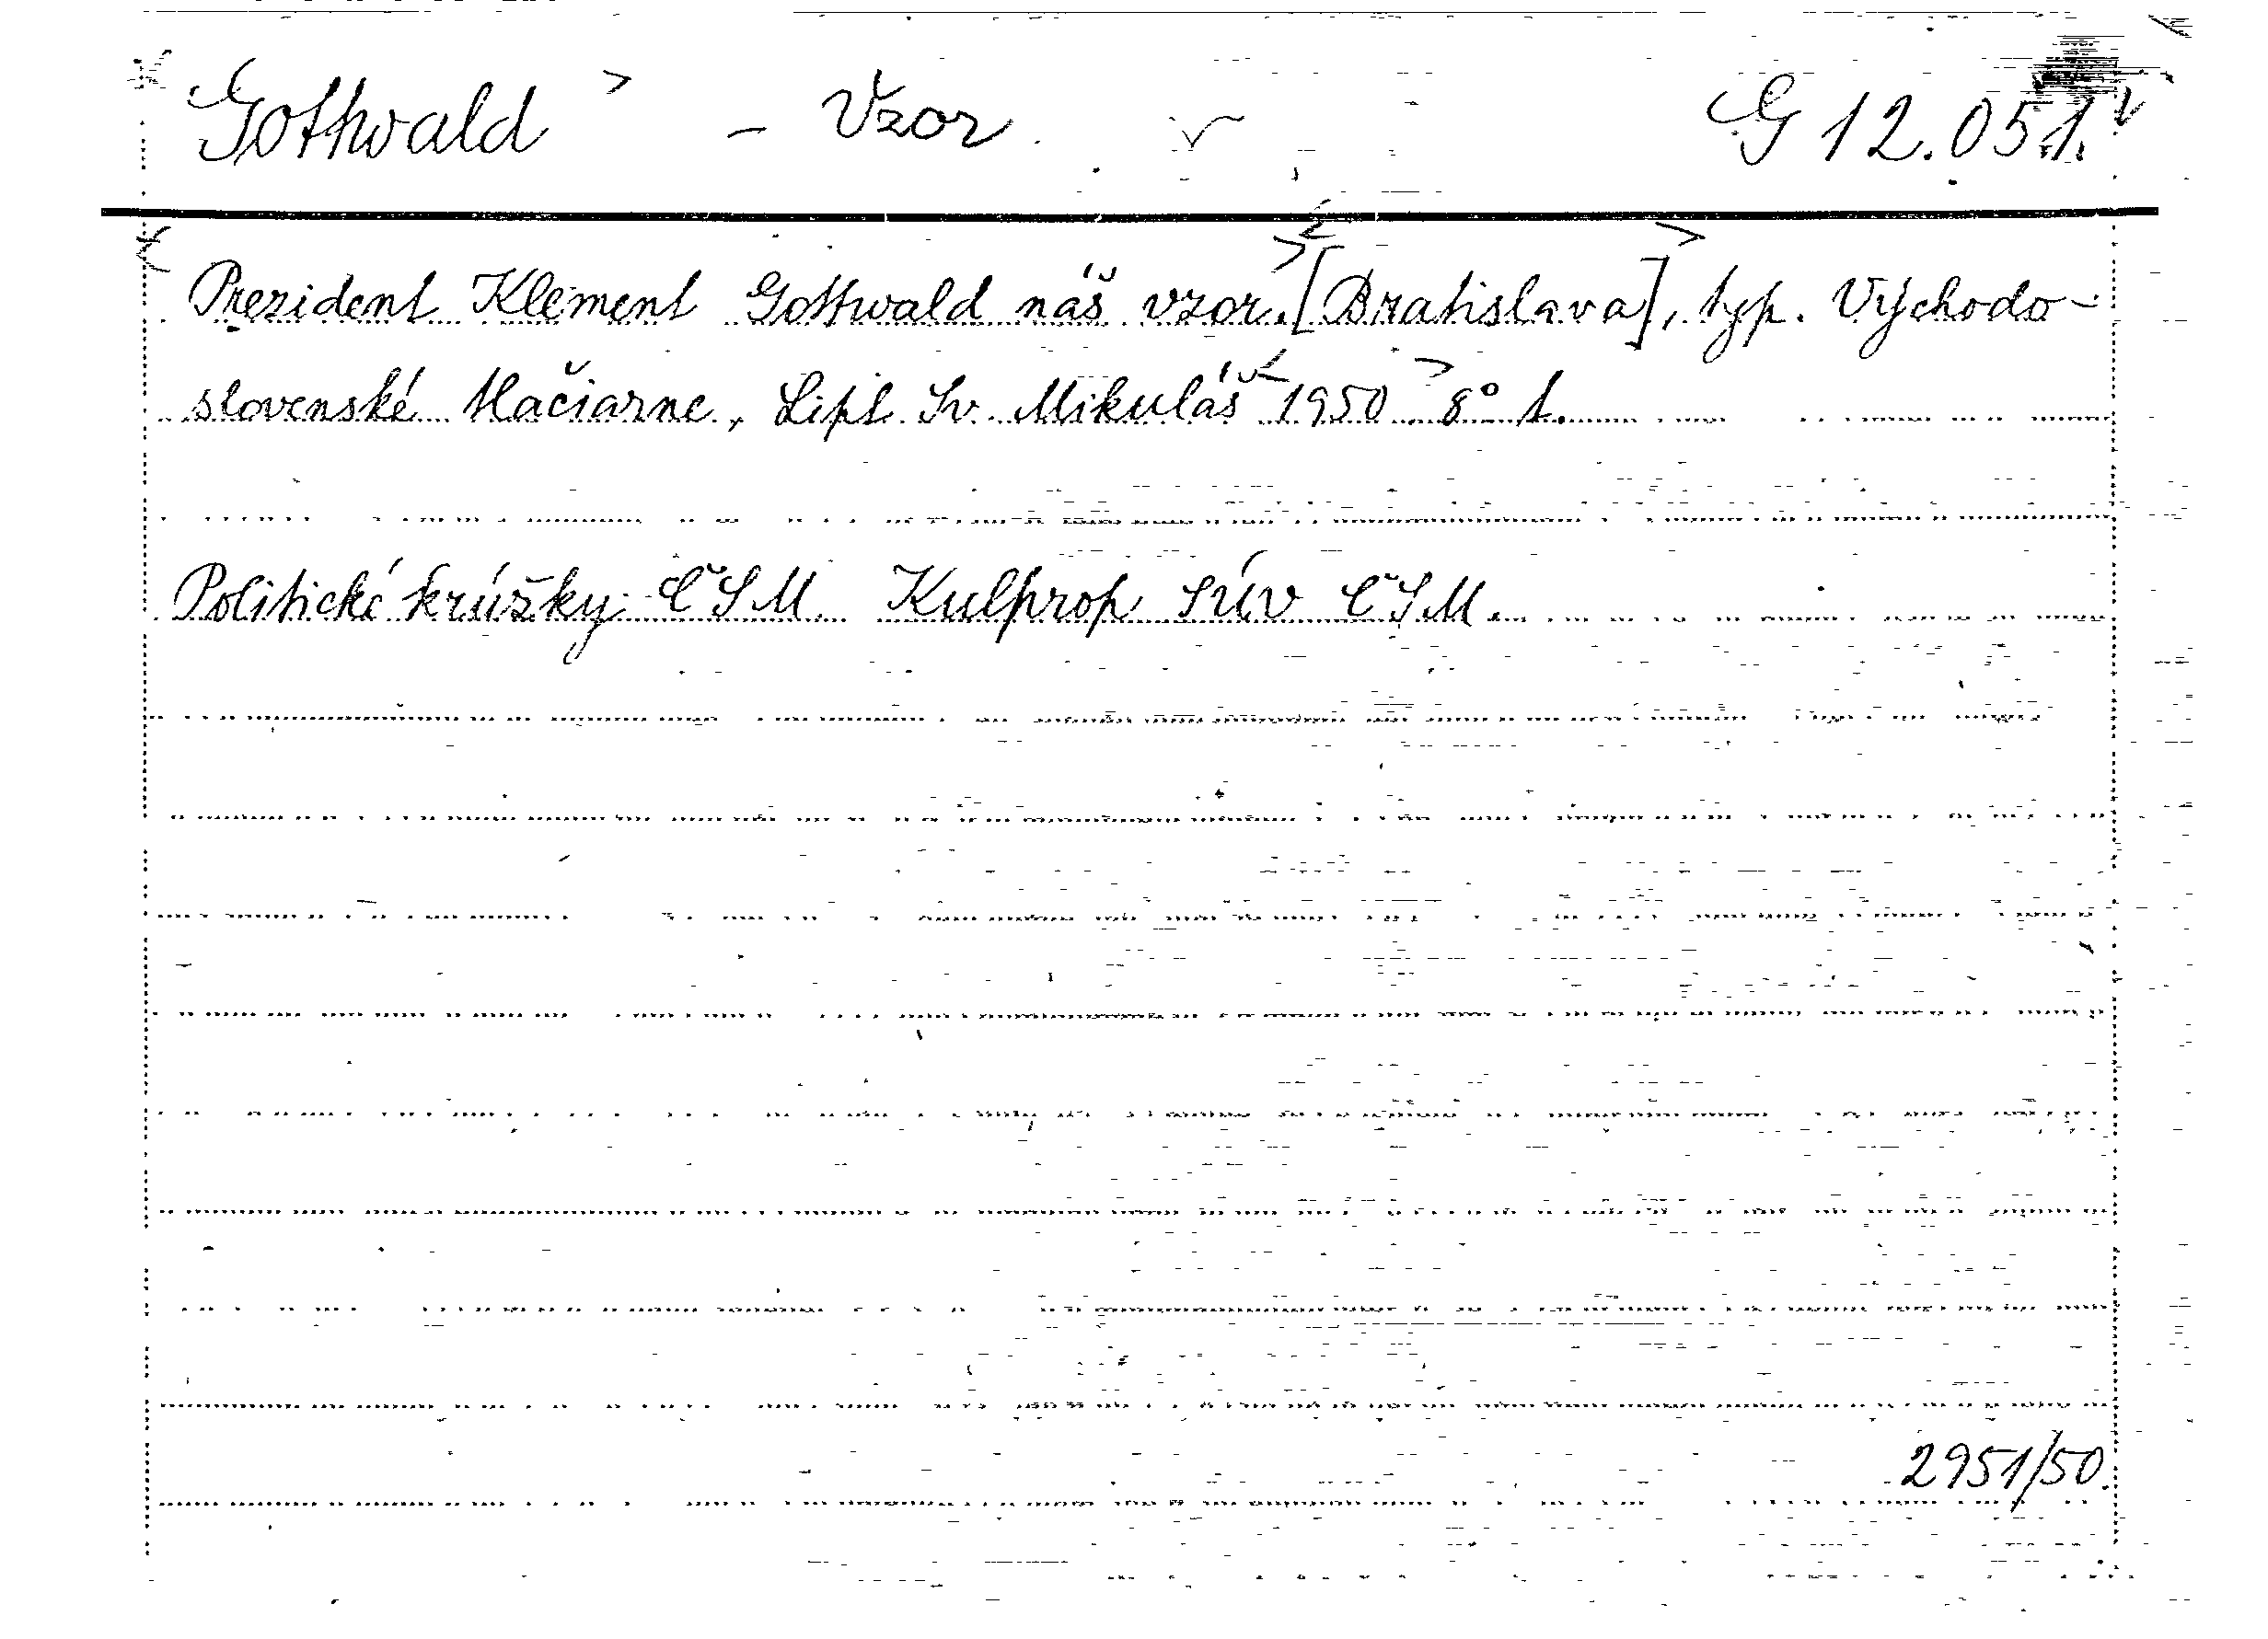 Gottwald - Vzor G 12.051.
Prezident Klement Gottwald náš vzor. [Bratislava], typ. Východo-
slovenské tlačiarne, Lipt. Sv. Mikuláš 1950 8° 1.
Politické krúžky ČSM. Kulprop SÚV ČSM.
2951/50.